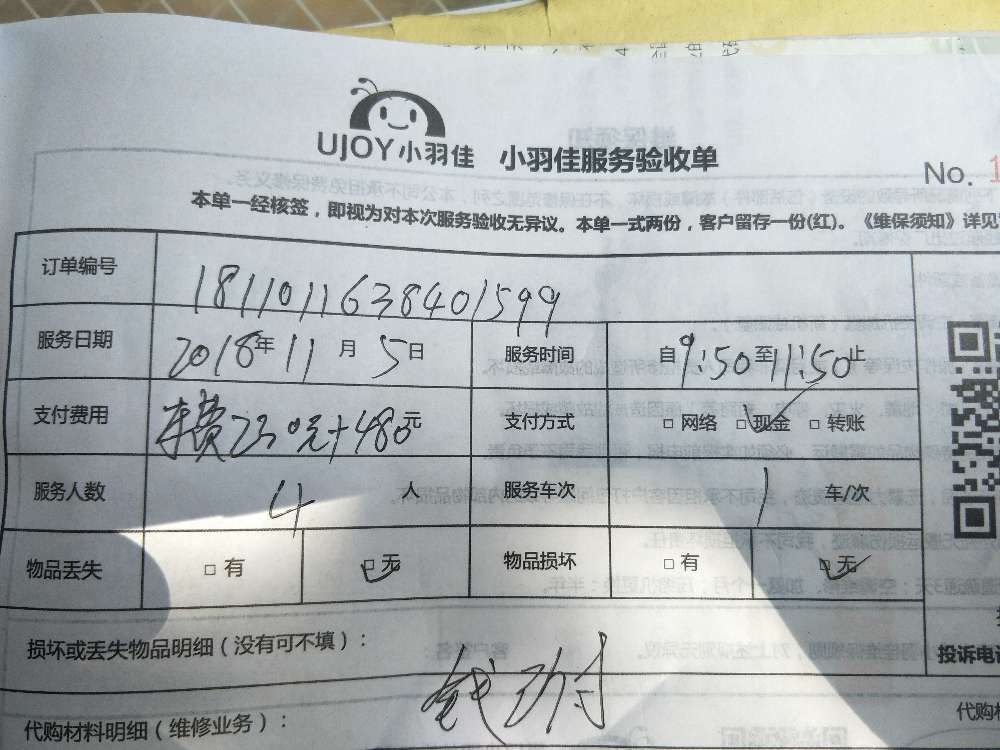 UJOY小羽佳 小羽佳服务验收单
No. 1
本单一经核签，即视为对本次服务验收无异议。本单一式两份，客户留存一份(红)。《维保须知》详见
订单编号 1811011638401599
服务日期 2018年11月5日 服务时间 自9:50至11:50止
支付费用 车费230元+480元 支付方式 □网络 □现金 □转账
服务人数 4人 服务车次 1车/次
物品丢失 □有 □无 物品损坏 □有 □无
损坏或丢失物品明细（没有可不填）：
投诉电话
钱
代购材料明细（维修业务）：
代购材